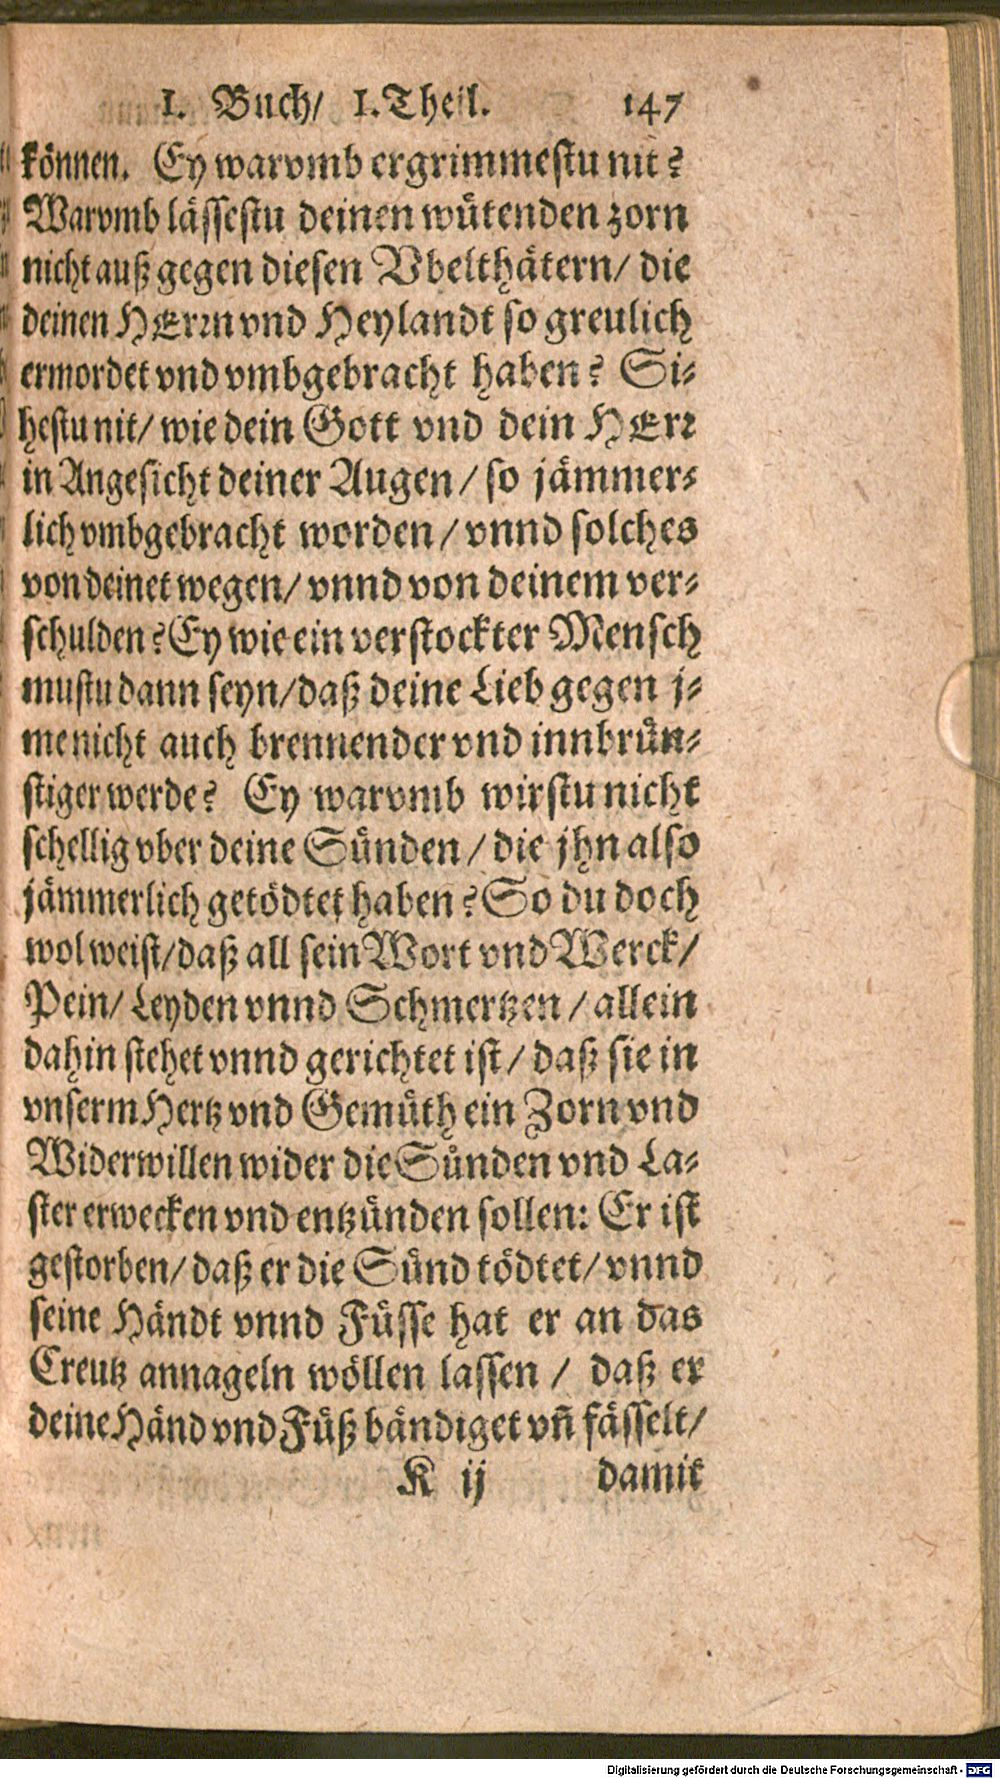 I. Buch/ I. Theil. 147
können. Ey warvmb ergrimmestu nit?
Warvmb lässestu deinen wütenden zorn
nicht auß gegen diesen Vbelthätern/ die
deinen HErrn vnd Heylandt so greulich
ermordet vnd vmbgebracht haben? Si-
hestu nit/ wie dein Gott vnd dein HErr
in Angesicht deiner Augen/ so jämmer-
lich vmbgebracht worden/ vnnd solches
von deinet wegen/ vnnd von deinem ver-
schulden? Ey wie ein verstockter Mensch
mustu dann seyn/ daß deine Lieb gegen j-
me nicht auch brennender vnd innbrün-
stiger werde? Ey warvmb wirstu nicht
schellig vber deine Sünden/ die jhn also
jämmerlich getödtet haben? So du doch
wol weist/ daß all sein Wort vnd Werck/
Pein/ Leyden vnnd Schmertzen/ allein
dahin stehet vnnd gerichtet ist/ daß sie in
vnserm Hertz vnd Gemüth ein Zorn vnd
Widerwillen wider die Sünden vnd La-
ster erwecken vnd entzünden sollen: Er ist
gestorben/ daß er die Sünd tödtet/ vnnd
seine Händt vnnd Füsse hat er an das
Creutz annageln wöllen lassen/ daß er
deine Händ vnd Füß bändiget vñ fässelt/
K ij damit
Digitalisierung gefördert durch die Deutsche Forschungsgemeinschaft - DFG